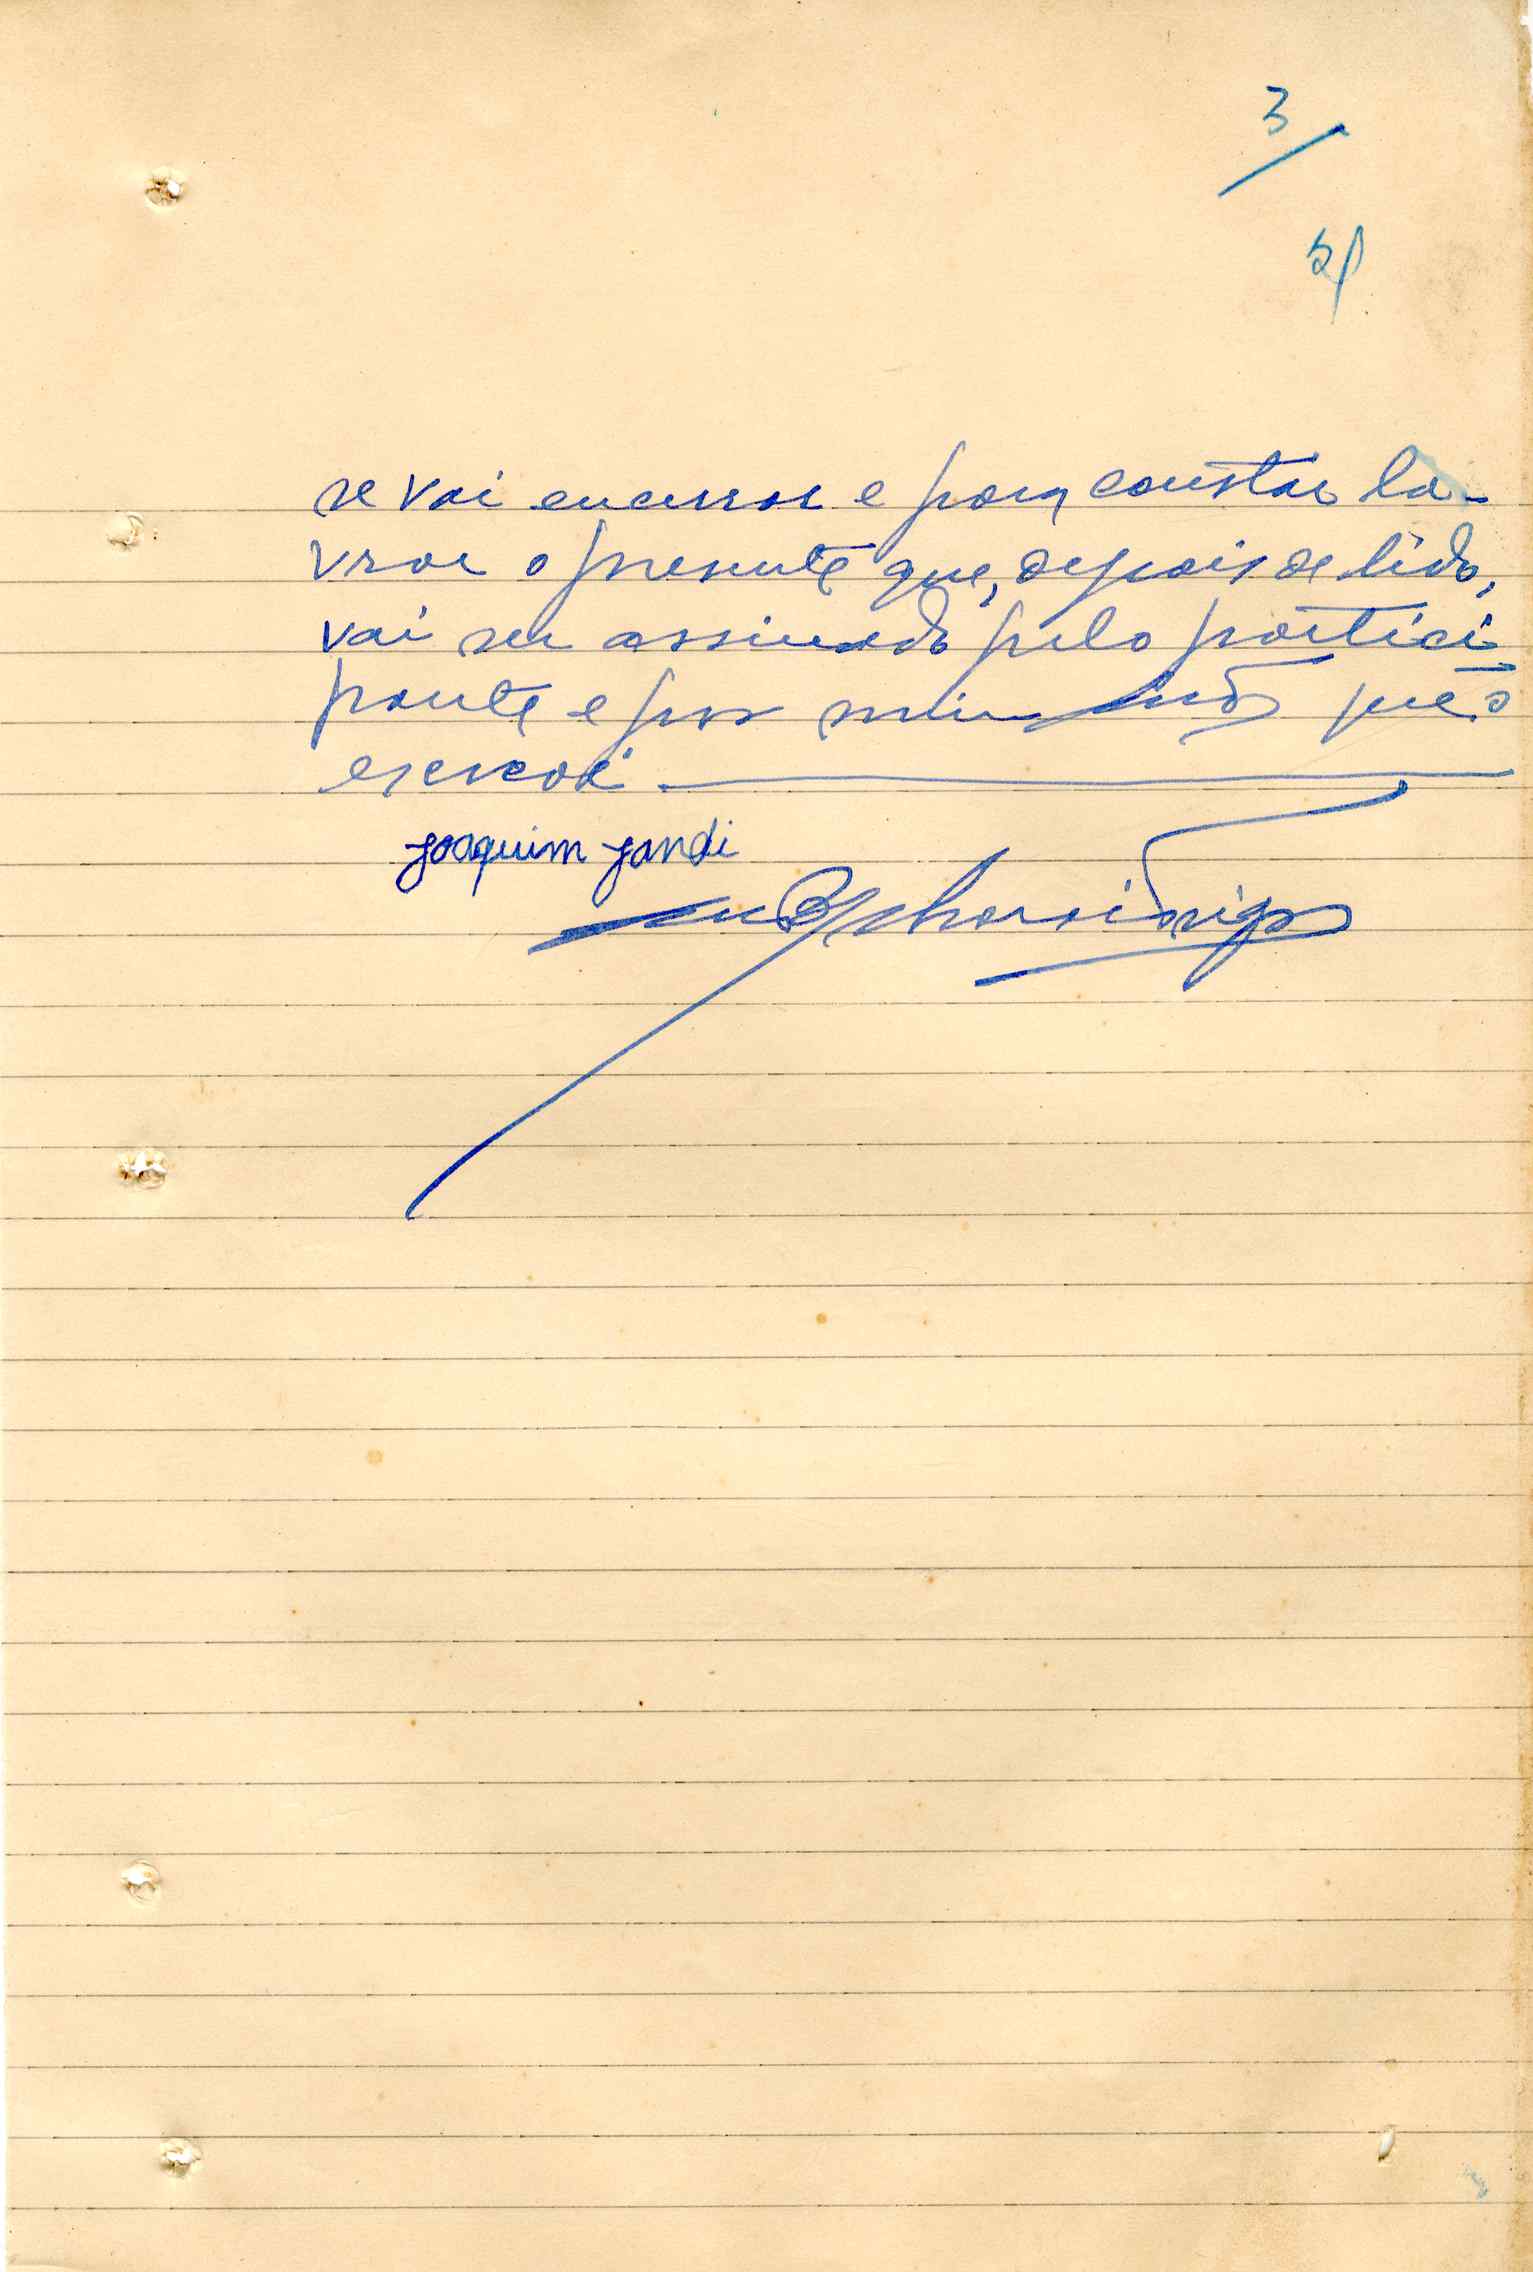 3
se vai encerrar e para constar la-
vrar o presente que, depois de lido,
vai ser assinado pelo partici
pante e por mim que o
escrevi
Joaquim Jandi